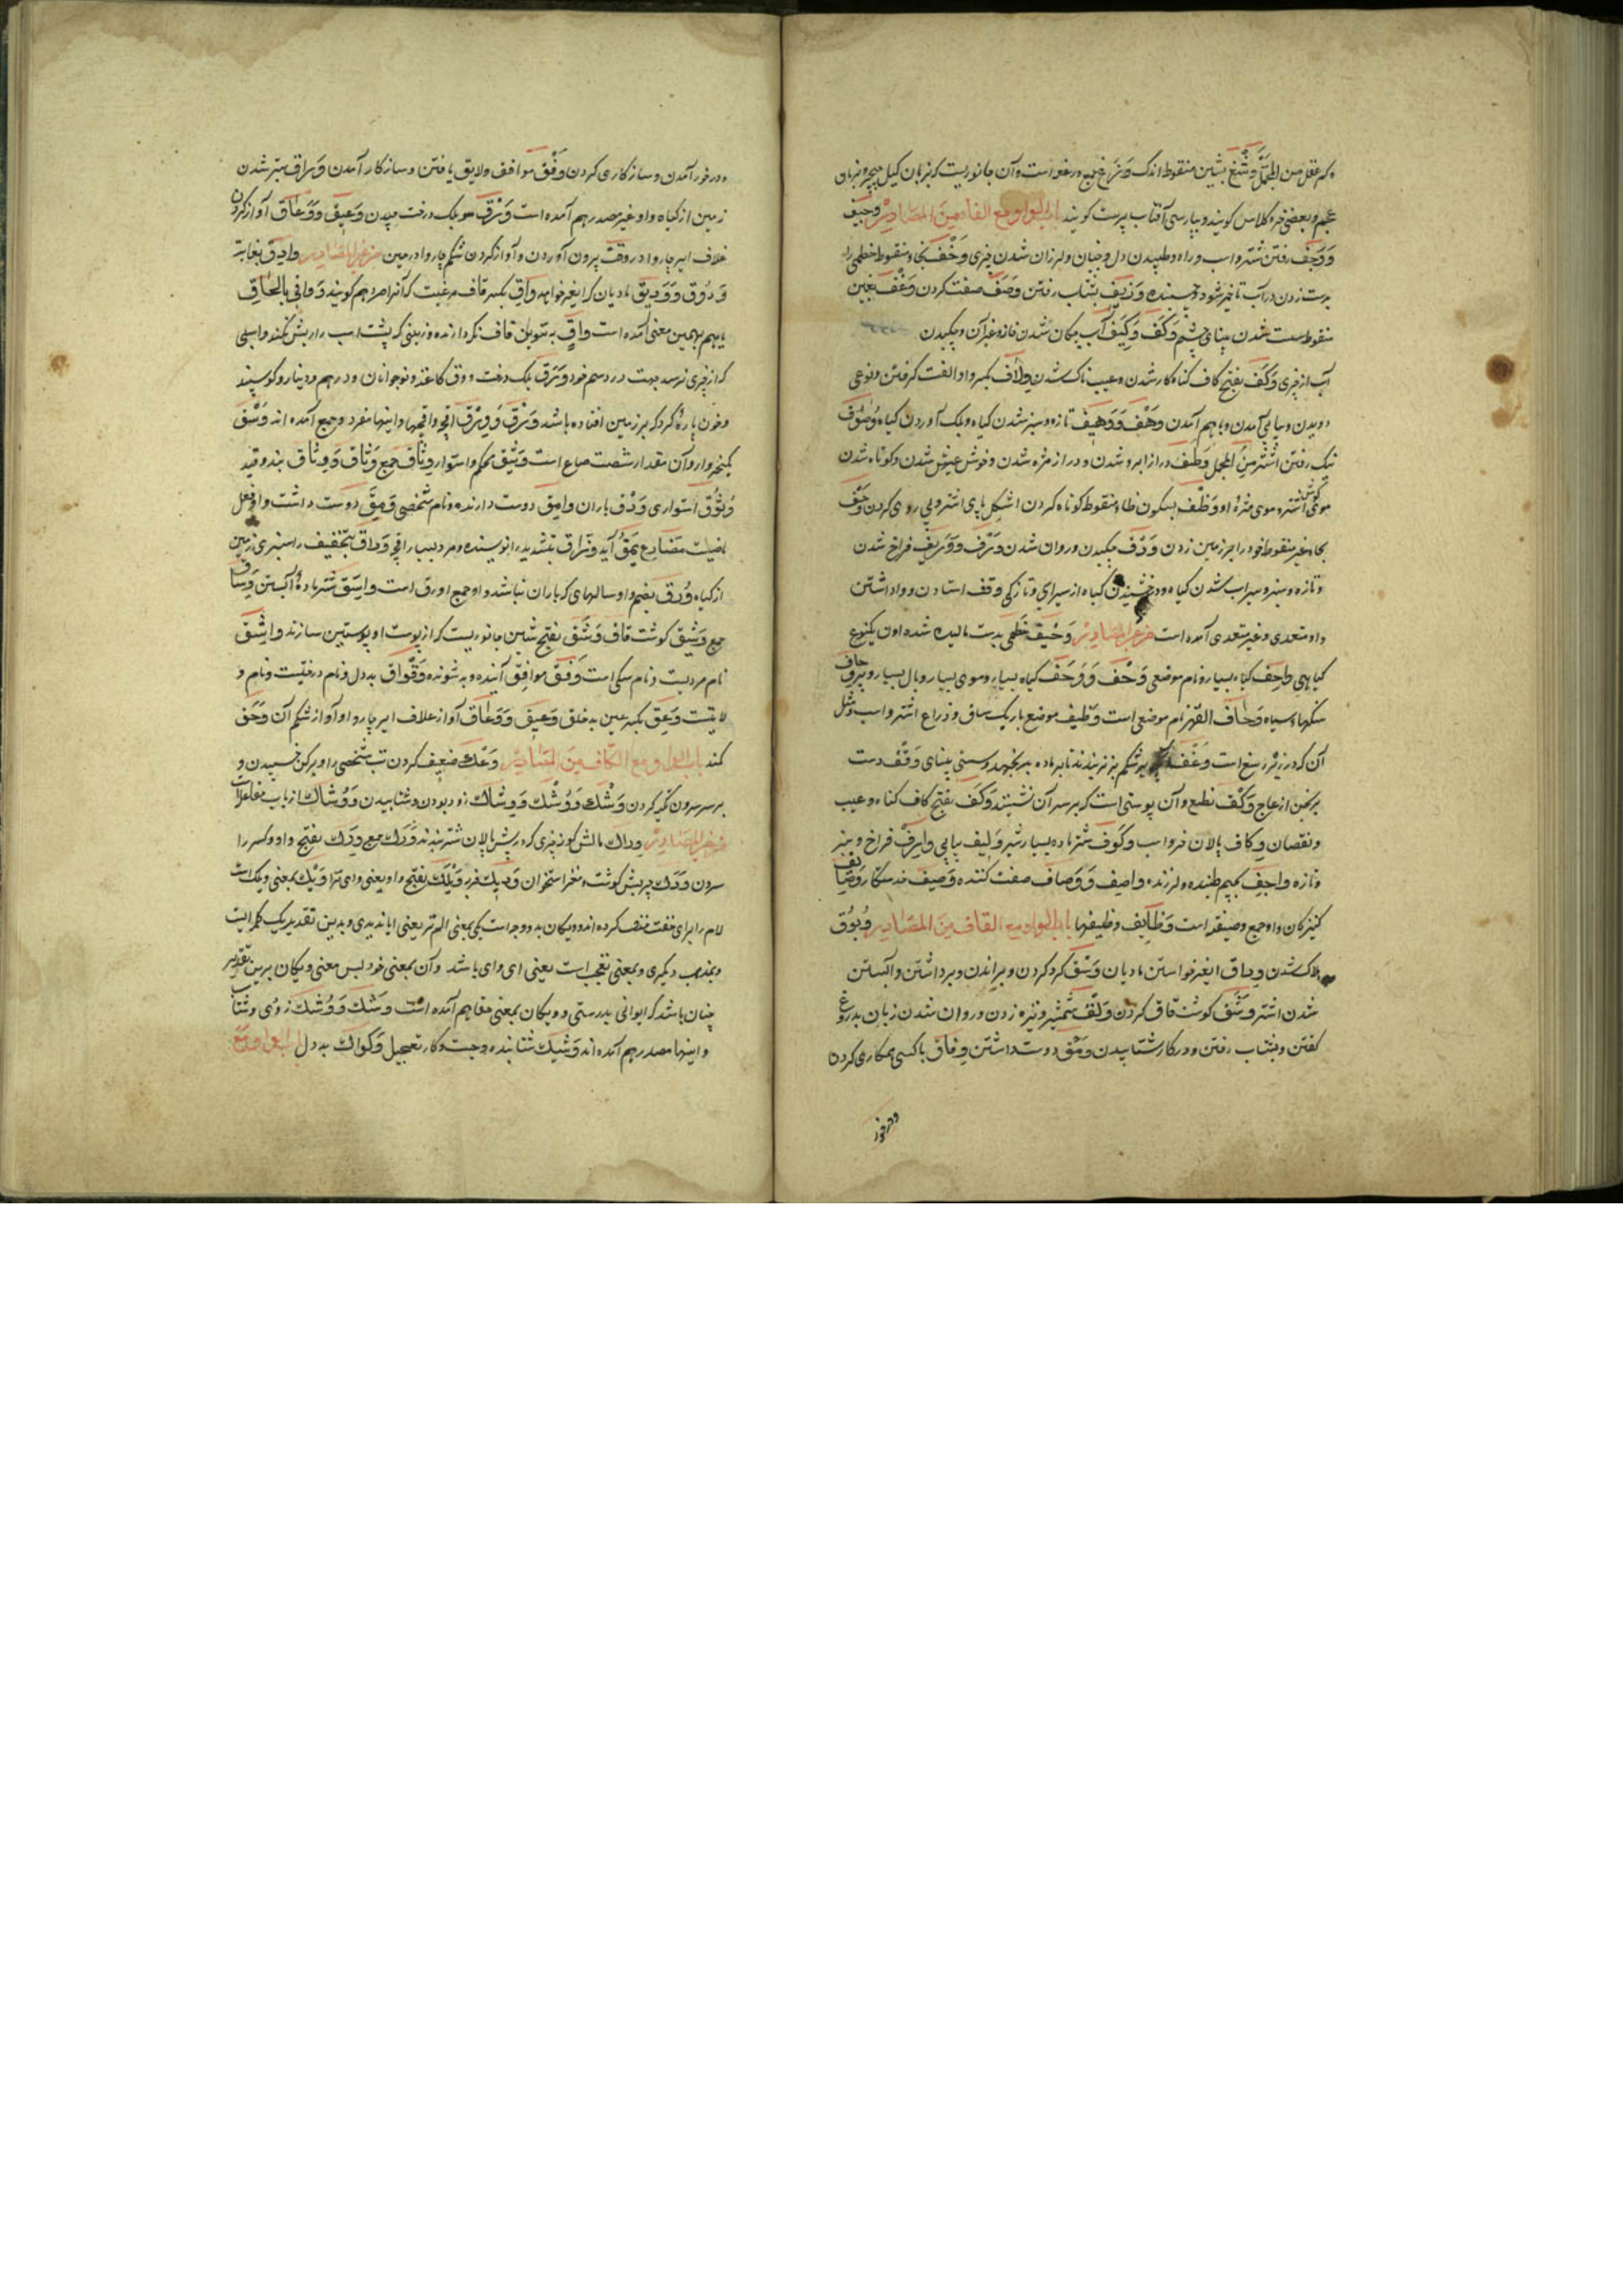 کم عقل من المجمل وشغ بشین منقوط اندک وزاغ جمع وزغ است و آن جانوریست که بزبان کیل پیچ و بزبان
عجم و بعضی خر و کلاس کویند و بپارسی آفتاب پرست کویند باب الواو مع الفا من المصادر وجیف
و وجف رفتن شتر و اسب و راه و طپیدن دل و جنبان و لرزان شدن چیزی وخف بخاء منقوط خطمی را
بدست زدن در آب تا خمیر شود و چسبنده وزیف بشتاب رفتن وصف صفت کردن وغف بغین
منقوط سست شدن بینای چشم وکف وکیف آب چکان شدن خانه و غیر آن و چکیدن
آب از چیزی وکف بفتح کاف کناه کار شدن و عیب ناک شدن ولاف بکسر واو الفت کرفتن و نوعی
دویدن و پیاپی آمدن و باهم آمدن وهف و وهیف تازه و سبز شدن کیاه و برک آوردن کیاه وصوف
نیک رفتن اشتر من المجمل وطف دراز ابرو شدن و دراز مژه شدن و خوش عیش شدن و کوتاه شدن
موی اشتر و موی مژه او وظف بسکون ظاء منقوط کوتاه کردن اشکل پای اشتر و پی روی کردن وحف
بحاء غیر منقوط خود را بر زمین زدن وذف چکیدن و روان شدن ورف و وریف فراخ شدن
و تازه و سبز و سیراب شدن کیاه و درخشیدن کیاه از سیرابی و تازکی وقف استادن و واداشتن
و او متعدی و غیر متعدی آمده است من غیر المصادر وخیف خطمی بدست مالیده شده اون یکنوع
کیاهی واحف کیاه بسیار و نام موضعی وحف و وحف کیاه بسیار و موی بسیار و بال بسیار و پر
سنکهاء سیاه وحاف القهر نام موضعی است وظیف موضع باریک ساق و ذراع اشتر و اسب و مثل
آن که در زیر رسغ است وغف بر شکم بز نر بندند تا بر ماده بر نجهد و سستی بینای وقف دست
برنجن از عاج وکف نطع و آن پوستی است که بر سر آن نشینند وکف بفتح کاف کناه و عیب
و نقصان وکاف پالان خر و اسب وکوف شتر ماده بسیار شیر ولیف پیاپی وارف فراخ و سبز
و تازه واجف بجیم طپنده و لرزنده واصف و وصاف صفت کننده وصیف خدمتکار وصایف
کنیزکان و او جمع وصیفه است وظایف وظیفها باب الواو مع القاف من المصادر وبوق
هلاک شدن وداق ایغر خواستن مادیان وسق کرد کردن و براندن و برداشتن و آبستن
شدن اشتر وشق کوشت قاق کردن ولق شمشیر و نیزه زدن و روان شدن زبان بدروغ
کفتن و بشتاب رفتن و در کار شتابیدن ومق دوست داشتن وفاق با کسی همکاری کردن
ودرخور
ودرخور آمدن و سازکاری کردن وفق موافق و لایق یافتن و سازکار آمدن وراق سبز شدن
زمین از کیاه و او غیر مصدر هم آمده است ورق برک درخت چیدن وعیق و وعاق آواز کردن
غلاف ایر چاروا در وقت بیرون آوردن و آواز کردن شکم چاروا در حین من غیر المصادر وادق بغایة
ودوق و ودیق مادیان که ایغر خواهد واق بکسر قاف مرغیست که آنرا صرد هم کویند وفافی بالحاق
یا هم بهمین معنی آمده است واق بتنوین قاف نکه دارنده و زینی که پشت اسب را ریش نکند و اسپی
که از چیزی ترسد بهت در رسم خود ورق برک درخت و ورق کاغذ و نوجوانان و درهم و دینار و کوسپند
و خون پاره کرد که بر زمین افتاده باشد ورق و ورق اقچه و اقچها و اینها مفرد و جمع آمده اند وسق
یکخروار و آن مقدار شصت صاع است وثیق محکم و استوار وثاق جمع وثاق و وثاق بند و قید
وثوق استواری ودق باران وامق دوست دارنده و نام شخصی ومق دوست داشت و او فعل
ماضیست مضارع یمق آید وراق بتشدید را نویسنده و مرد بسیار اقچه وراق بتخفیف را سبزی زمین
از کیاه ورق بضم واو سالهای که باران نباشد و او جمع اورق است واسق شتر ماده آبستن وساق
جمع وشیق کوشت قاق وشق بفتح شین جانوریست که از پوست او پوستین سازند واشق
نام مردیست و نام سکی است وفق موافق آینده و به شونده وقواق بددل و نام درختیست و نام و
لایتست وعق بکسر عین بدخلق وعیق و وعاق آواز غلاف ایر چاروا و آواز شکم آن وحق
کند باب الواو مع الکاف من المصادر وعک ضعیف کردن تب شخصی را و بر کن خسپیدن و
بر سر سرون تکیه کردن وشک و وشک و وشاک زود بودن و شتابیدن و وشاک از باب مفاعلة
من غیر المصادر وراک بالش کوژ چیزی که در پیش پالان شتر نهند ورک جمع ورک بفتح واو و کسر را
سرون ودک چربش کوشت و مغز استخوان ودیک فربه ویلک بفتح واو یعنی وای ترا ویک بمعنی ویلک است
لام را برای خفت حذف کرده اند و ویکان بدو وجه است یکی بمعنی الم تر یعنی ایا ندیدی و بدین تقدیر یک کلمه ایست
و بمذهب دیکری و بمعنی تعجب است یعنی ای وای باشد و آن بمعنی خود پس معنی ویکان برین تقدیر
چنان باشد که ای وای بدرستی و ویکان بمعنی حقا هم آمده است وشک و وشک زودی وشتاب
و اینها مصدر هم آمده اند وشیک شتابنده و چست و کار تعجیل وکواک بددل باب الواو مع